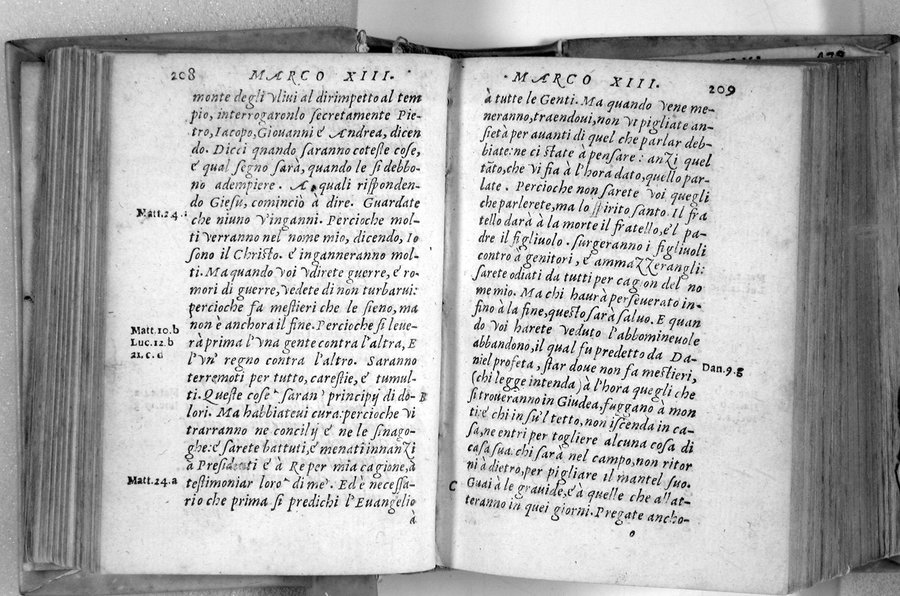 208 MARCO XIII.
monte degli Vliui al dirimpetto al tem
pio, interrogaronlo secretamente Pie-
tro, Iacopo, Giouanni è Andrea, dicen
do. Dicci quando saranno coteste cose,
è qual segno sarà, quando le si debbo-
no adempiere. A quali risponden-
do Giesù, cominciò à dire. Guardate
Matt.24.a
che niuno v'inganni. Percioche mol-
ti verranno nel nome mio, dicendo, Io
sono il Christo. è inganneranno mol-
ti. Ma quando voi vdirete guerre, è ro-
mori di guerre, vedete di non turbarui:
percioche fa mestieri che le sieno, ma
non è anchora il fine. Percioche si leue-
Matt.10.b
rà prima l'vna gente contra l'altra, E
Luc.12.b
l'vn' regno contra l'altro. Saranno
21.c.d
terremoti per tutto, carestie, è tumul-
ti. Queste cose saran' principij di do-
B
lori. Ma habbiateui cura: percioche vi
trarranno ne concilij è ne le sinago-
ghe: è sarete battuti, è menati innanzi
à Presidenti è à Re per mia cagione, à
Matt.24.a
testimoniar loro di me. Ed è necessa-
rio che prima si predichi l'Euangelio
à
MARCO XIII. 209
à tutte le Genti. Ma quando vene me-
neranno, traendoui, non vi pigliate an-
sietà per auanti di quel che parlar deb-
biate: ne ci state à pensare: anzi quel
tāto, che vi fia à l'hora dato, quello par-
late. Percioche non sarete voi quegli
che parlerete, ma lo spirito santo. Il fra
tello darà à la morte il fratello, è'l pa-
dre il figliuolo. surgeranno i figliuoli
contro à genitori, è ammazzerangli:
sarete odiati da tutti per cagion del no
me mio. Ma chi haurà perseuerato in-
fino à la fine, questo sarà saluo. E quan
do voi harete veduto l'abbomineuole
abbandono, il qual fu predetto da Da-
niel profeta, star doue non fa mestieri,
Dan.9.g
(chi legge intenda) à l'hora quegli che
si troueranno in Giudea, fuggano à mon
ti: è chi in su'l tetto, non iscenda in ca-
sa, ne entri per togliere alcuna cosa di
casa sua. chi sarà nel campo, non ritor
ni à dietro, per pigliare il mantel suo.
C
Guai à le grauide, è à quelle che allat-
teranno in quei giorni. Pregate ancho-
o